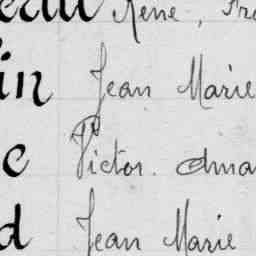 eau René, Fra
in Jean Marie
c Victor. Ama
d Jean Marie